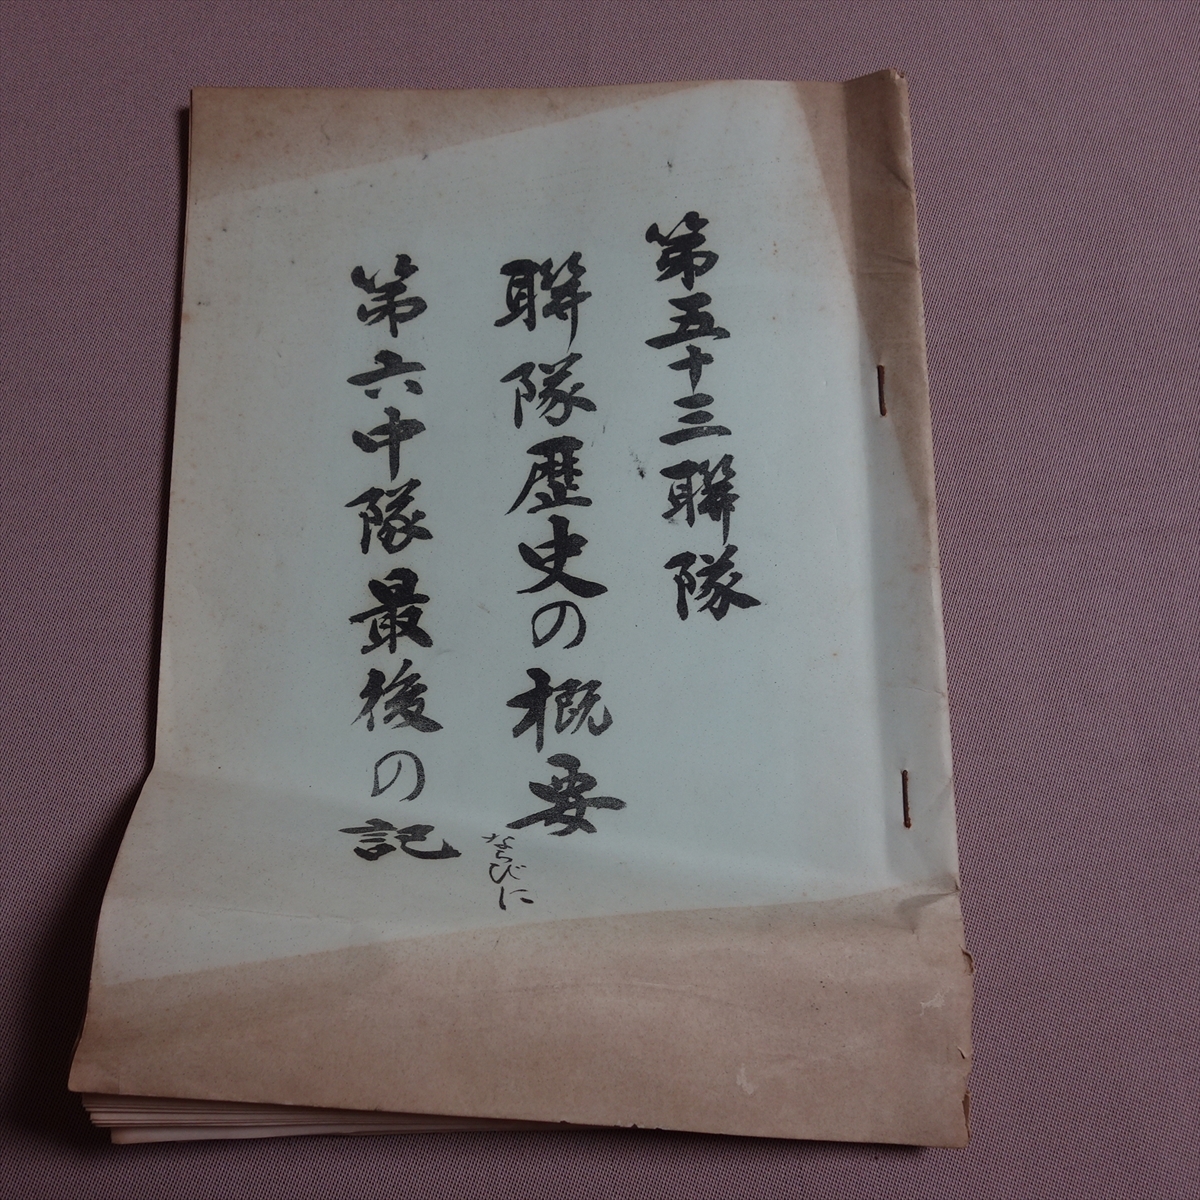 第五十三聯隊
聯隊歴史の概要
ならびに
第六中隊最後の記